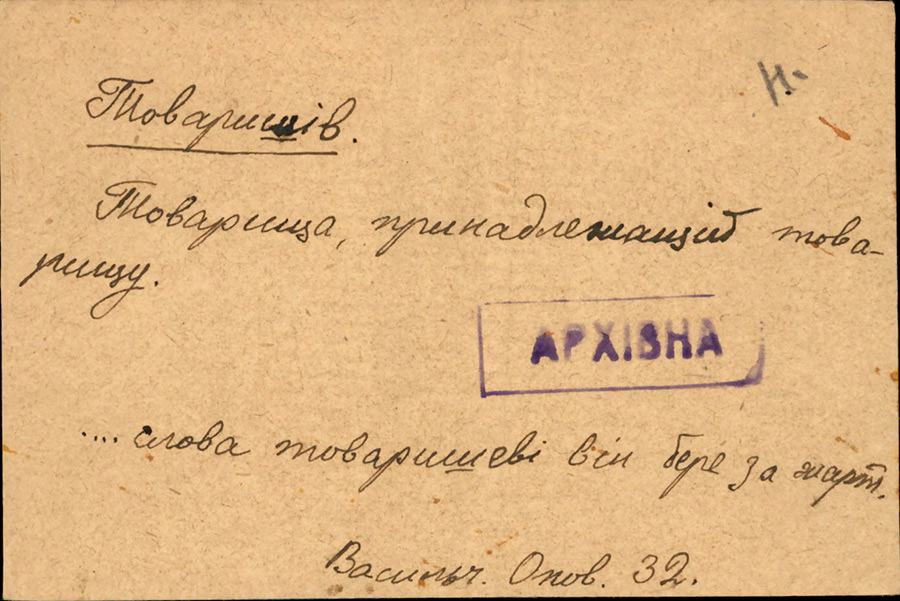 Н.
Товаришів.
Товарища, принадлежащий това-
рищу.
АРХІВНА
.... слова товаришеві він бере за жарт.
Васильч. Опов. 32.